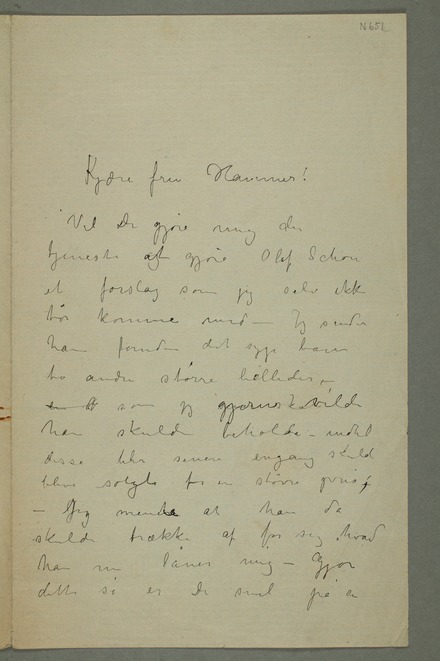 N 651
Kjære fru Hammer!
Vil De gjøre mig den
tjeneste at gjøre Olaf Schou
et forslag som jeg selv ikke
tør komme med – Jeg sender
ham foruden det syge barn
to andre større billeder –
som jeg gjerne vilde
han skulde beholde – indtil
disse blir senere engang skuld
blive solgte for en større pris,
– Jeg mente at han da
skulde trække af for sig hvad
han nu låner mig – Gjør
dette så er De snil på en